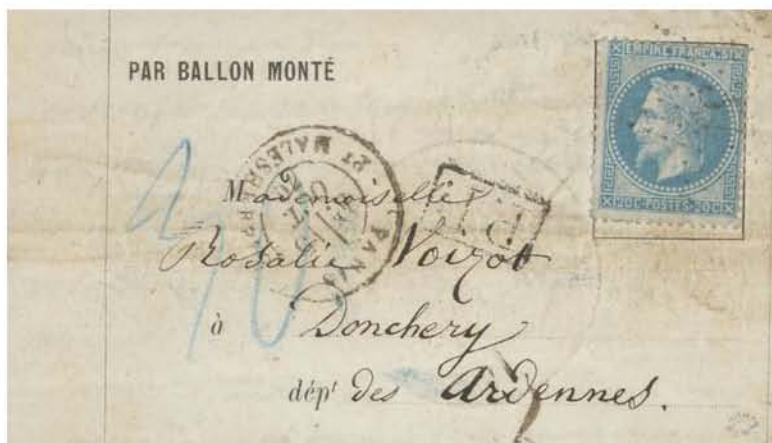 PAR BALLON MONTÉ
EMPIRE FRANCAIS
20 C-POSTES-20 C
PARIS
Pl MALESH
Mademoiselle
Rosalie Voizot
à Donchery
dépt des Ardennes.